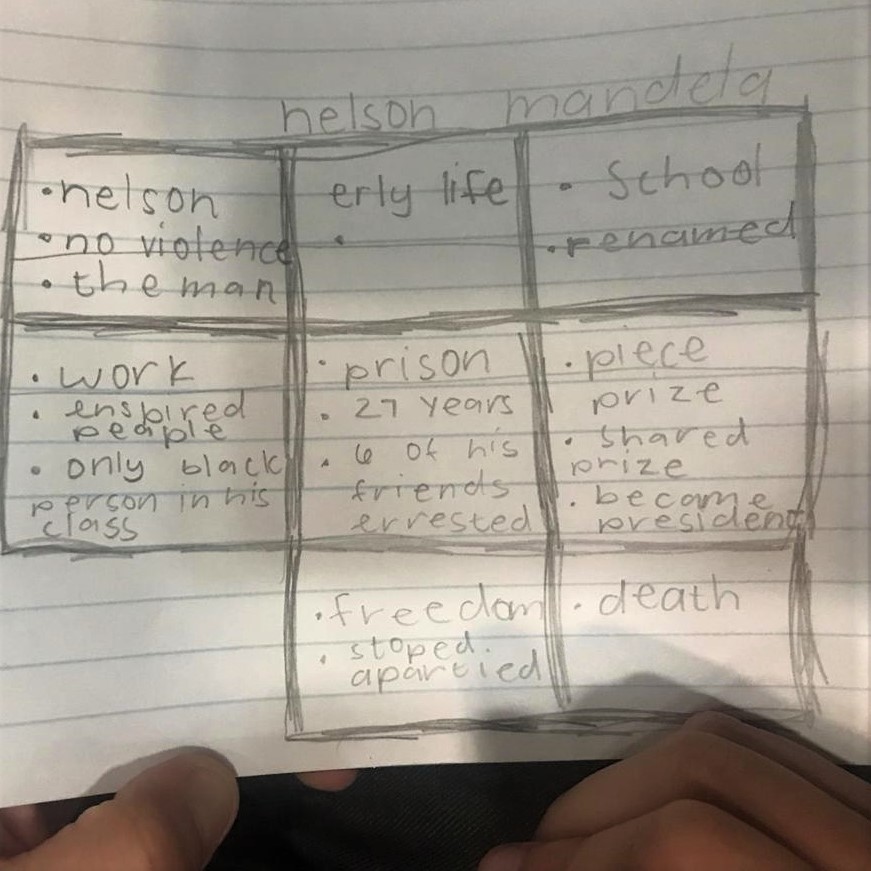 nelson mandela
• nelson
• no violence
• the man
erly life
•
• School
• renamed
• work
• enspired
peaple
• only black
person in his
class
• prison
• 27 years
• 6 of his
friends
errested
• piece
prize
• shared
prize
• became
president
• freedom
• stoped
apartied
• death